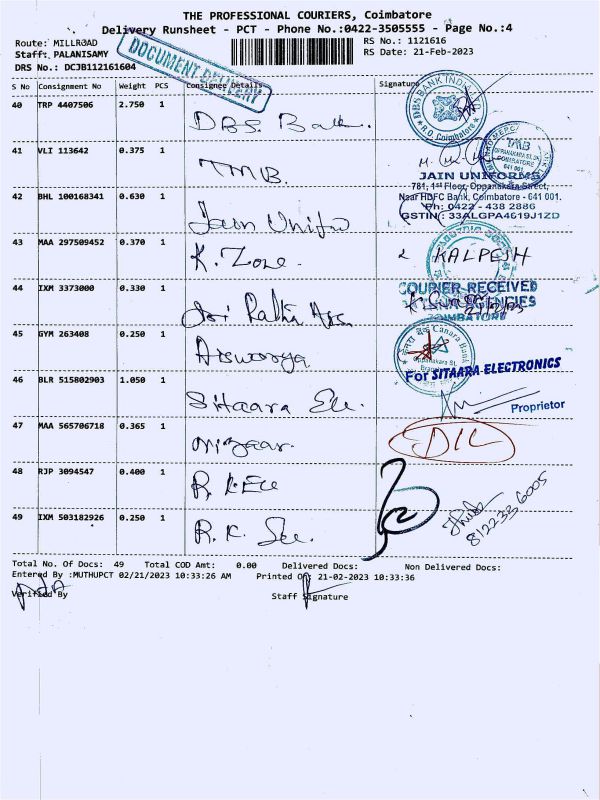 THE PROFESSIONAL COURIERS, Coimbatore
Delivery Runsheet - PCT - Phone No.:0422-3505555 - Page No.:4
Route: MILLROAD
RS No.: 1121616
Staff: PALANISAMY
RS Date: 21-Feb-2023
DRS No.: DCJB112161604
DOCUMENT DELIVERY
S No Consignment No Weight PCS Consignee Details Signature
40 TRP 4407506 2.750 1 DBS. Bank.
DBS BANK INDIA
R.O. Coimbatore
41 VLI 113642 0.375 1 TMB.
TMB
OPPANAKARA ST.
COIMBATORE
641 001
JAIN UNIFORMS
781, 1st Floor, Oppanakara Street,
42 BHL 100168341 0.630 1 Jain Unifo
Near HDFC Bank, Coimbatore - 641 001.
Ph: 0422 - 438 2886
GSTIN: 33ALGPA4619J1ZD
43 MAA 297509452 0.370 1 K. Zone.
KALPESH
44 IXM 3373000 0.330 1
COURIER RECEIVED
AGENCIES
COIMBATORE
45 GYM 263408 0.250 1 Aiswarya
Canara Bank
Oppanakara St.
46 BLR 515802903 1.050 1 Sitaara Ele.
For SITAARA ELECTRONICS
Proprietor
47 MAA 565706718 0.365 1 Nizaar.
DIL
48 RJP 3094547 0.400 1 R.K. Ele
49 IXM 503182926 0.250 1 R.K. See.
8122336005
Total No. Of Docs: 49 Total COD Amt: 0.00 Delivered Docs: Non Delivered Docs:
Entered By :MUTHUPCT 02/21/2023 10:33:26 AM Printed On: 21-02-2023 10:33:36
Verified By Staff Signature